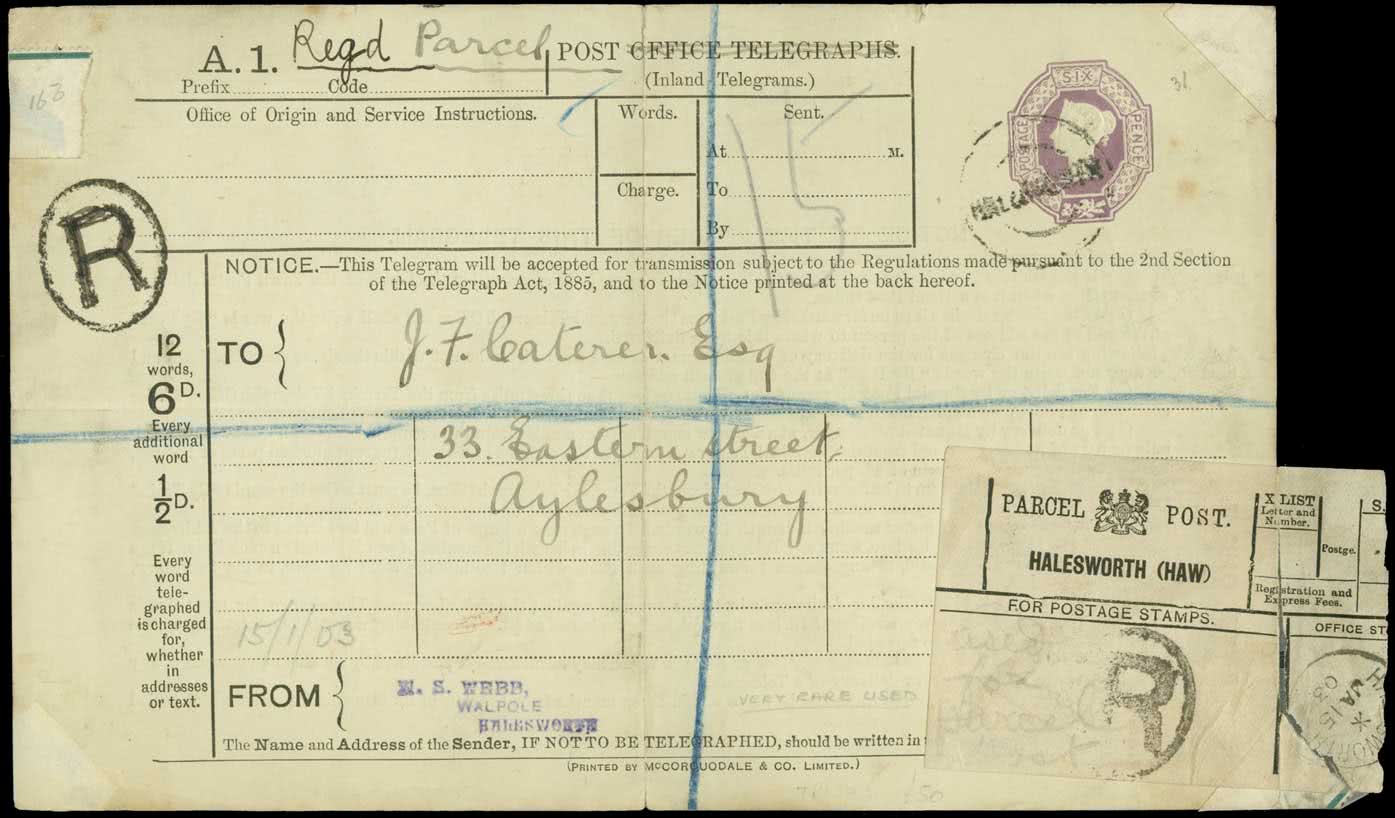 A. 1.
Regd Parcel
POST OFFICE TELEGRAPHS.
(Inland Telegrams.)
Prefix
Code
Office of Origin and Service Instructions.
Words.
Charge.
Sent.
At
M.
To
By
15
SIX
PENCE
POSTAGE
163
R
NOTICE.—This Telegram will be accepted for transmission subject to the Regulations made pursuant to the 2nd Section
of the Telegraph Act, 1885, and to the Notice printed at the back hereof.
12
words,
6D.
Every
additional
word
1/2D.
Every
word
tele-
graphed
is charged
for,
whether
in
addresses
or text.
TO
J. F. Caterer. Esq
33. Eastern Street,
Aylesbury
15/1/03
FROM
W. S. WEBB,
WALPOLE
HALESWORTH
VERY RARE USED
The Name and Address of the Sender, IF NOT TO BE TELEGRAPHED, should be written in
(PRINTED BY MCCORQUODALE & CO. LIMITED.)
£50
PARCEL POST.
HALESWORTH (HAW)
FOR POSTAGE STAMPS.
X LIST
Letter and
Number.
Postge.
S.
Registration and
Express Fees.
OFFICE ST
used
for
R
X
JA 15
03